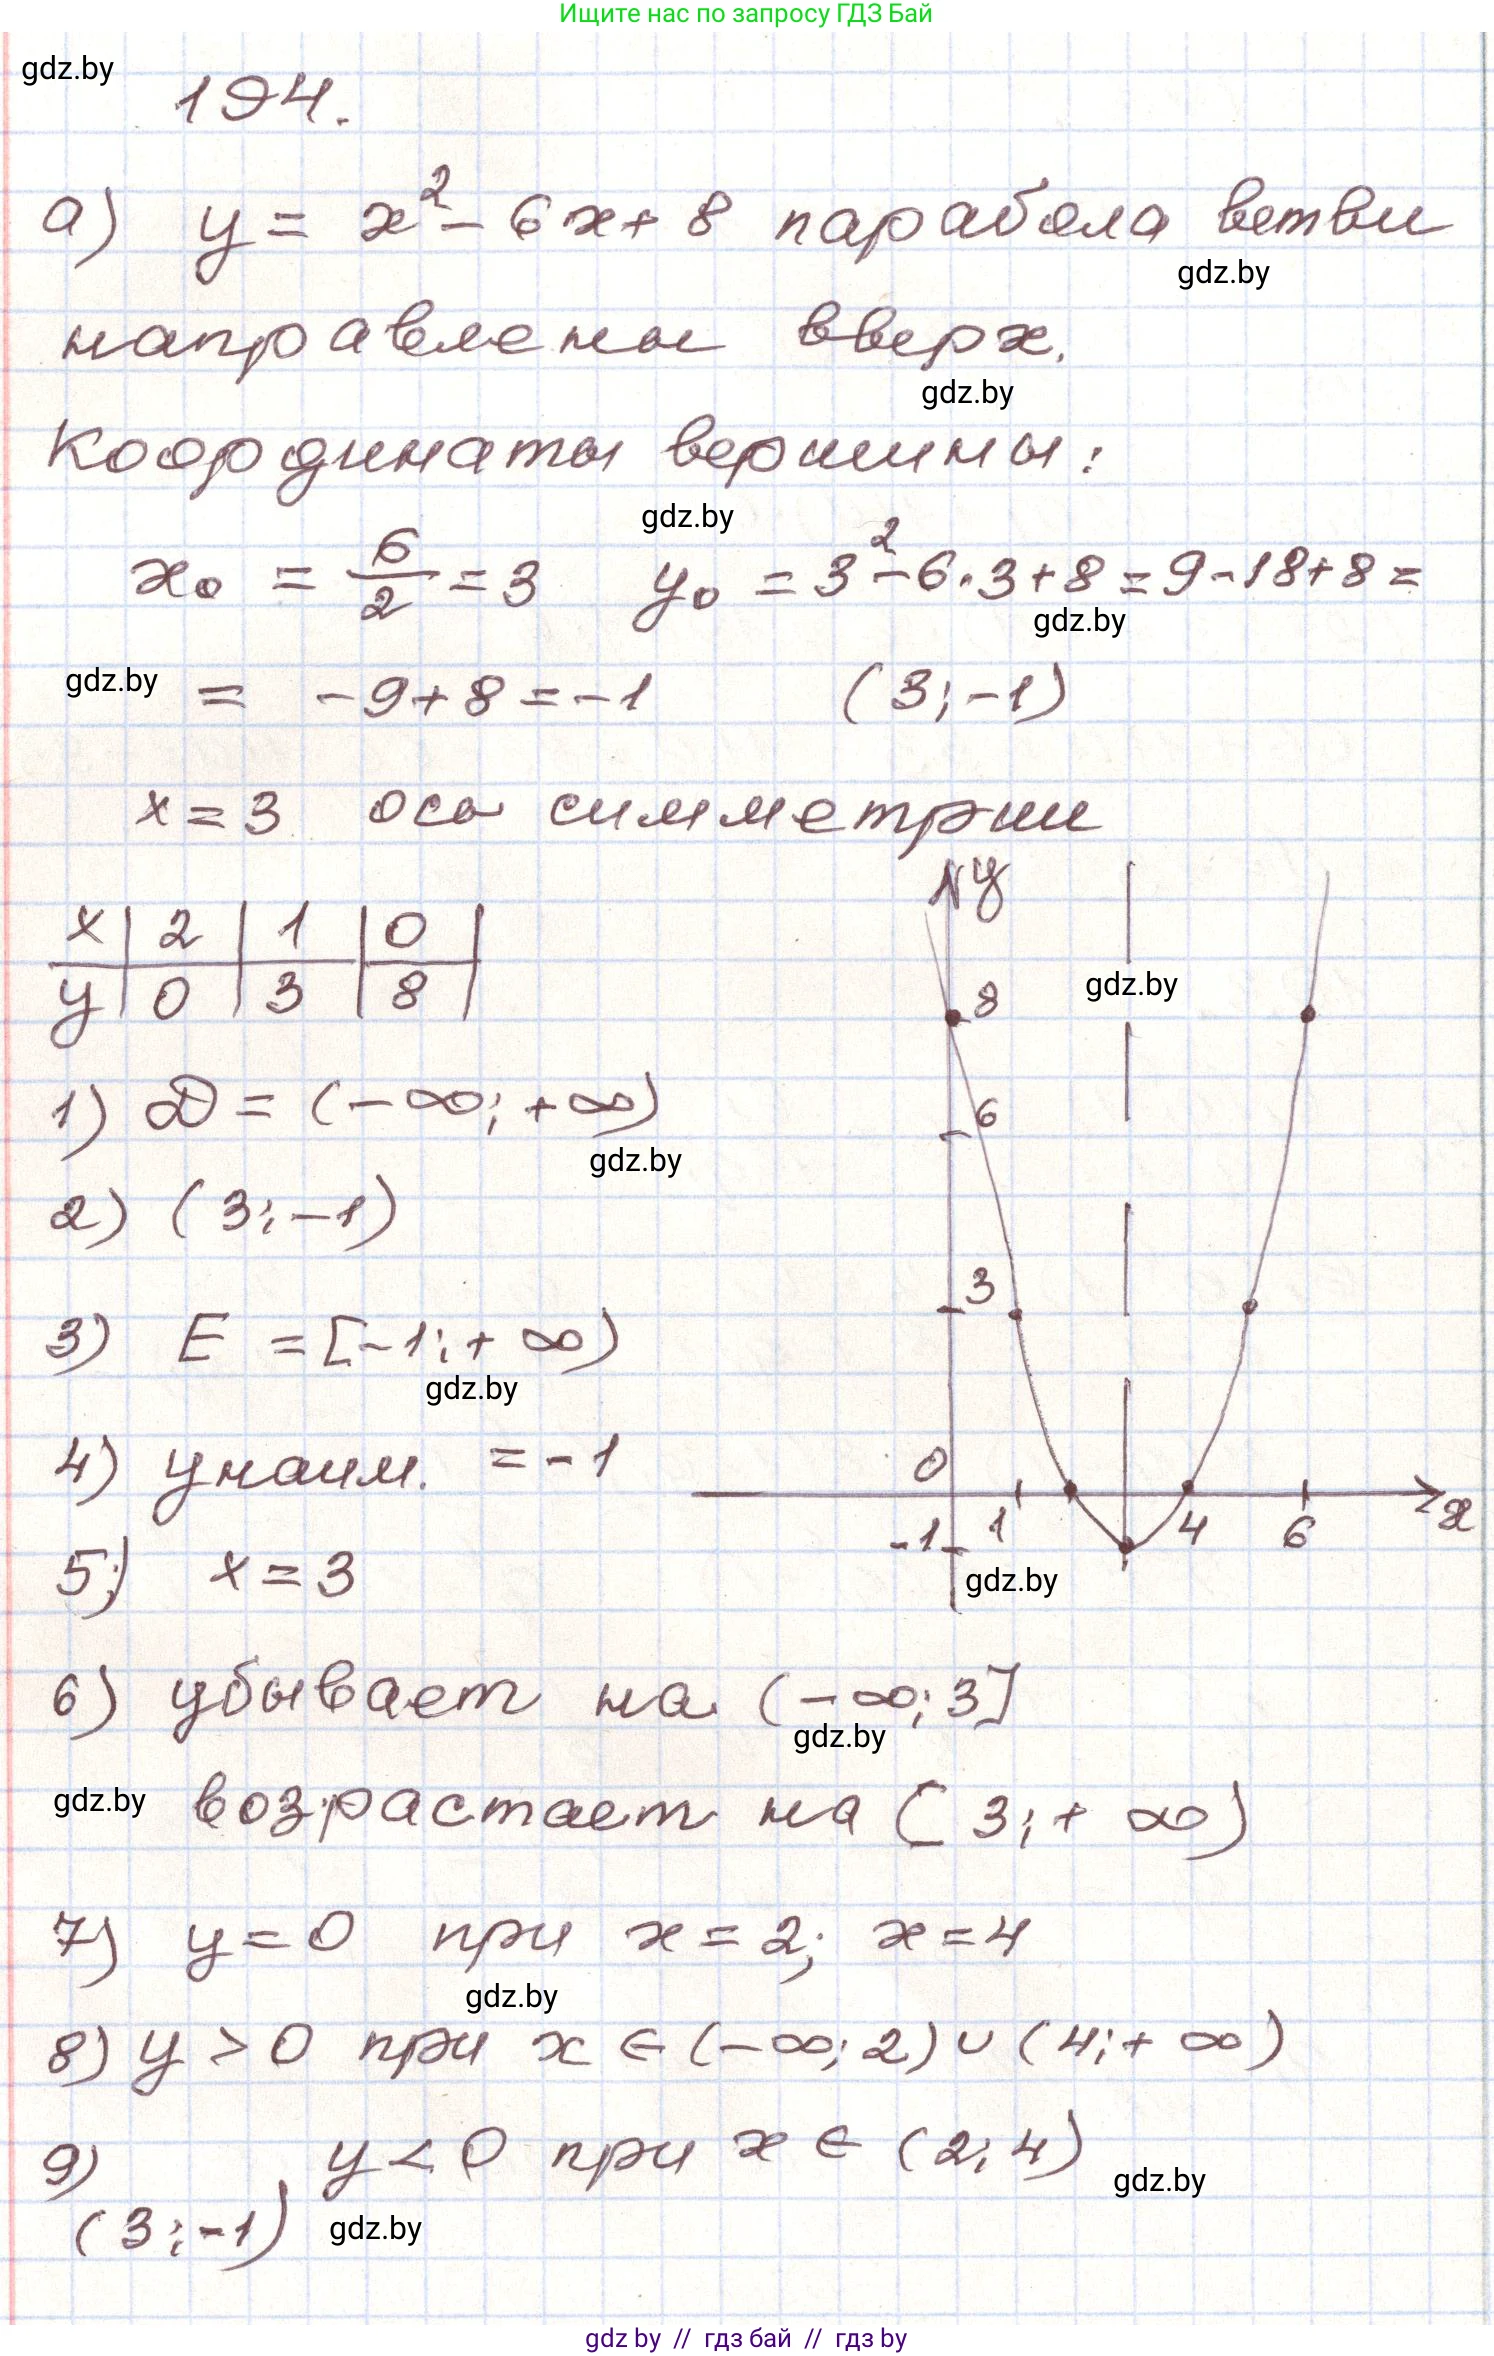 Ищите нас по запросу ГДЗ Бай
gdz.by
194.
а) y = x² - 6x + 8 парабола ветви
gdz.by
направлены вверх.
gdz.by
Координаты вершины:
gdz.by
x₀ = 6/2 = 3 y₀ = 3² - 6·3 + 8 = 9 - 18 + 8 =
gdz.by
gdz.by
= -9 + 8 = -1 (3; -1)
x = 3 ось симметрии
x | 2 | 1 | 0 |
y | 0 | 3 | 8 |
y
gdz.by
8
6
3
0
-1
1
4
6
x
gdz.by
1) D = (-∞; +∞)
gdz.by
2) (3; -1)
3) E = [-1; +∞)
gdz.by
4) yнаим. = -1
5) x = 3
6) убывает на (-∞; 3]
gdz.by
gdz.by
возрастает на [3; +∞)
7) y = 0 при x = 2; x = 4
gdz.by
8) y > 0 при x ∈ (-∞; 2) ∪ (4; +∞)
y < 0 при x ∈ (2; 4)
gdz.by
9)
(3; -1)
gdz.by
gdz by // гдз бай // гдз by